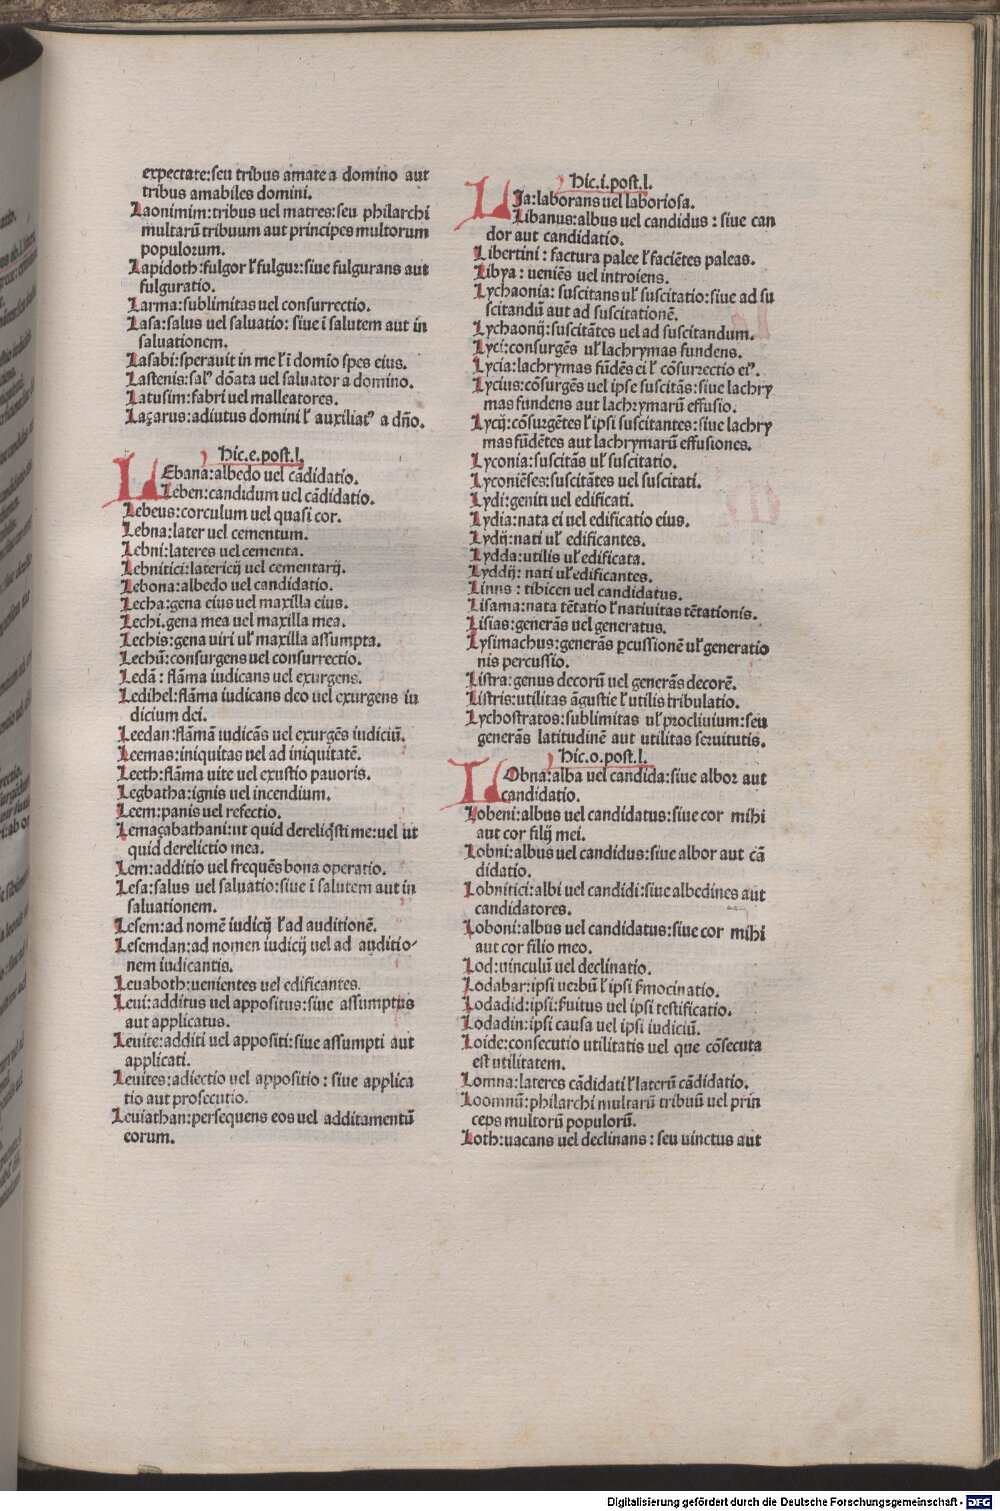 expectate:seu tribus amate a domino aut
tribus amabiles domini.
Laonimim:tribus uel matres:seu philarchi
multarū tribuum aut principes multorum
populorum.
Lapidoth:fulgor ł fulgur:siue fulgurans aut
fulguratio.
Larma:sublimitas uel consurrectio.
Lasa:salus uel saluatio:siue ī salutem aut in
saluationem.
Lasabi:sperauit in me ł ī domīo spes eius.
Lastenis:salꝰ dōata uel saluator a domino.
Latusim:fabri uel malleatores.
Laçarus:adiutus domini ł auxiliatꝰ a dño.
Hic.e.post.l.
LEbana:albedo uel cādidatio.
Leben:candidum uel cādidatio.
Lebeus:corculum uel quasi cor.
Lebna:later uel cementum.
Lebni:lateres uel cementa.
Lebnitici:latericij uel cementarij.
Lebona:albedo uel candidatio.
Lecha:gena eius uel maxilla eius.
Lechi.gena mea uel maxilla mea.
Lechis:gena uiri uł maxilla assumpta.
Lechū:consurgens uel consurrectio.
Ledā:flāma iudicans uel exurgens.
Ledihel:flāma iudicans deo uel exurgens iu
dicium dei.
Leedan:flāmā iudicās uel exurgēs iudiciū.
Leemas:iniquitas uel ad iniquitatē.
Leeth:flāma uite uel exustio pauoris.
Legbatha:ignis uel incendium.
Leem:panis uel refectio.
Lemaçabathani:ut quid dereliq̄sti me:uel ut
quid derelictio mea.
Lem:additio uel frequēs bona operatio.
Lesa:salus uel saluatio:siue ī salutem aut in
saluationem.
Lesem:ad nomē iudicij ł ad auditionē.
Lesemdan:ad nomen iudicij uel ad auditio-
nem iudicantis.
Leuaboth:uenientes uel edificantes.
Leui:additus uel appositus:siue assumptus
aut applicatus.
Leuite:additi uel appositi:siue assumpti aut
applicati.
Leuites:adiectio uel appositio:siue applica
tio aut prosecutio.
Leuiathan:persequens eos uel additamentū
eorum.
Hic.i.post.l.
LIa:laborans uel laboriosa.
Libanus:albus uel candidus:siue can
dor aut candidatio.
Libertini:factura palee ł faciētes paleas.
Libya:ueniēs uel introiens.
Lychaonia:suscitans uł suscitatio:siue ad su
scitandū aut ad suscitationē.
Lychaonij:suscitātes uel ad suscitandum.
Lyci:consurgēs uł lachrymas fundens.
Lycia:lachrymas fūdēs ei ł cōsurrectio eiꝰ.
Lycius:cōsurgēs uel ipse suscitās:siue lachry
mas fundens aut lachrymarū effusio.
Lycij:cōsurgētes ł ipsi suscitantes:siue lachry
mas fūdētes aut lachrymarū effusiones.
Lyconia:suscitās uł suscitatio.
Lyconiēses:suscitātes uel suscitati.
Lydi:geniti uel edificati.
Lydia:nata ei uel edificatio eius.
Lydij:nati uł edificantes.
Lydda:utilis uł edificata.
Lyddij:nati uł edificantes.
Linns:tibicen uel candidatus.
Lisama:nata tētatio ł natiuitas tētationis.
Lisias:generās uel generatus.
Lysimachus:generās ꝑcussionē uł generatio
nis percussio.
Listra:genus decorū uel generās decorē.
Listris:utilitas āgustie ł utilis tribulatio.
Lychostratos:sublimitas uł procliuium:seu
generās latitudinē aut utilitas seruitutis.
Hic.o.post.l.
LObna:alba uel candida:siue albor aut
candidatio.
Lobeni:albus uel candidatus:siue cor mihi
aut cor filij mei.
Lobni:albus uel candidus:siue albor aut cā
didatio.
Lobnitici:albi uel candidi:siue albedines aut
candidatores.
Loboni:albus uel candidatus:siue cor mihi
aut cor filio meo.
Lod:uinculū uel declinatio.
Lodabar:ipsi uerbū ł ipsi ẜmocinatio.
Lodadid:ipsi:ẜuitus uel ipsi testificatio.
Lodadin:ipsi causa uel ipsi iudiciū.
Loide:consecutio utilitatis uel que cōsecuta
est utilitatem.
Lomna:lateres cādidati ł laterū cādidatio.
Loomnū:philarchi multarū tribuū uel prin
ceps multorū populorū.
Loth:uacans uel declinans:seu uinctus aut
Digitalisierung gefördert durch die Deutsche Forschungsgemeinschaft - DFG